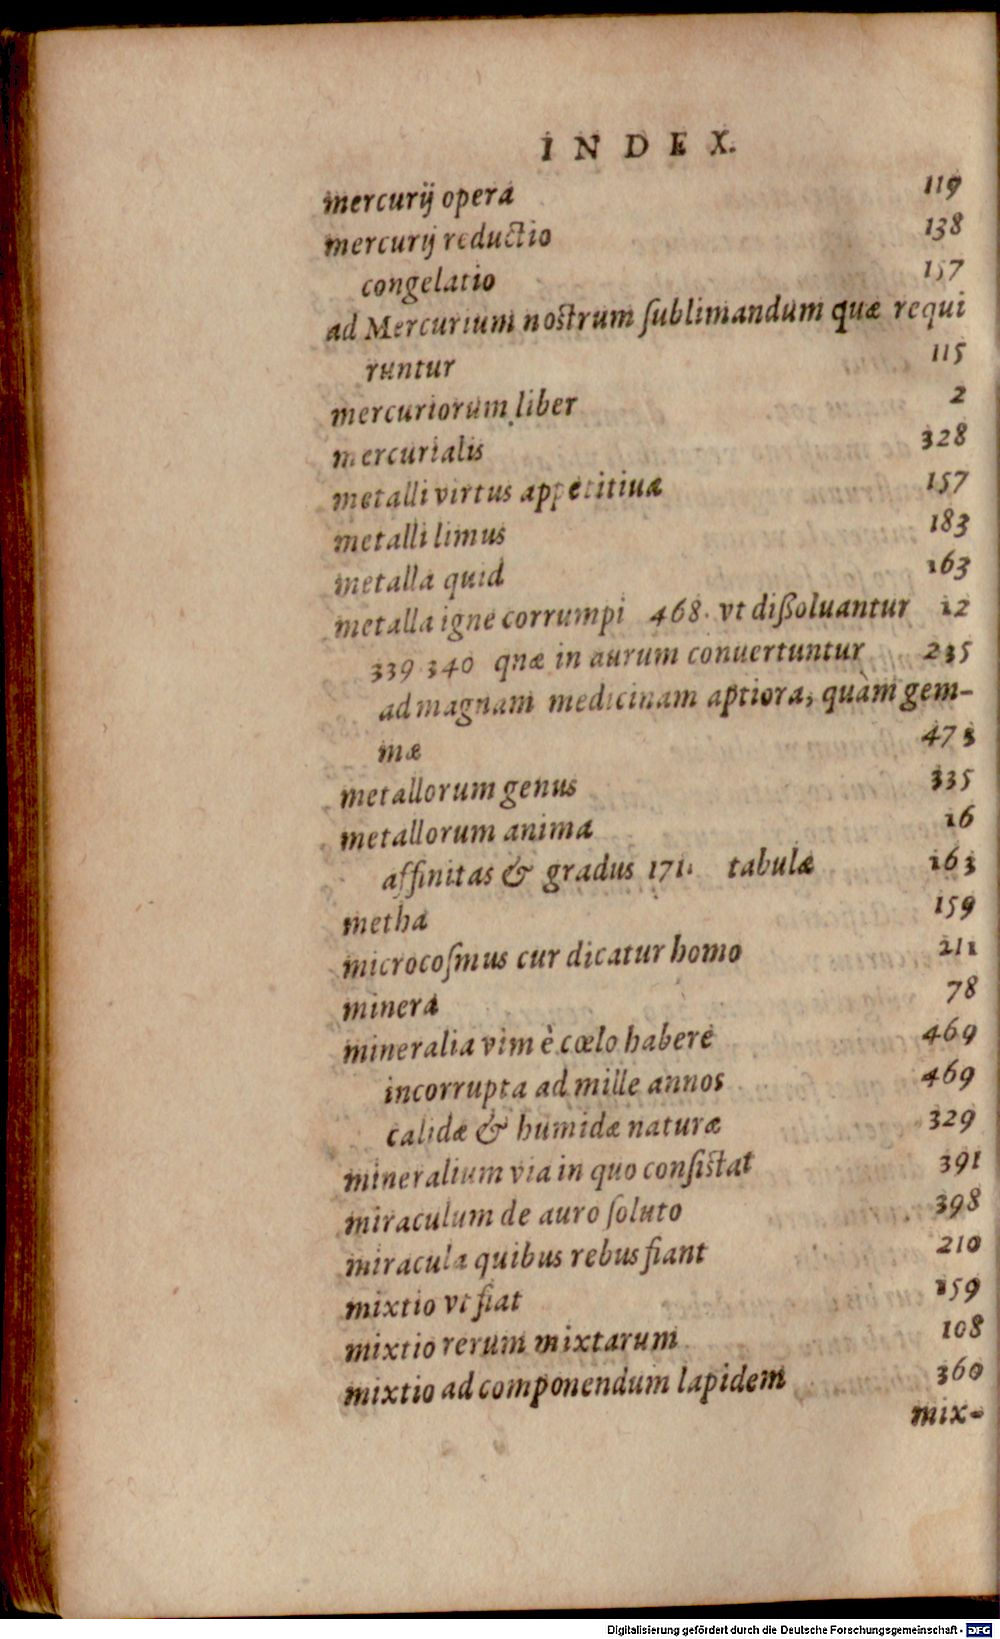 INDEX.
mercurij opera 119
mercurij reductio 138
congelatio 157
ad Mercurium nostrum ſublimandum quæ requi
runtur 115
mercuriorum liber 2
mercurialis 328
metalli virtus appetitiua 157
metalli limus 183
metalla quid 163
metalla igne corrumpi 468. vt dißoluantur 12
339 340 qnæ in aurum conuertuntur 235
ad magnam medicinam aptiora, quàm gem-
mæ 473
metallorum genus 335
metallorum anima 16
affinitas & gradus 171. tabulæ 163
metha 159
microcoſmus cur dicatur homo 211
minera 78
mineralia vim è cœlo habere 469
incorrupta ad mille annos 469
calidæ & humidæ naturæ 329
mineralium via in quo conſistat 391
miraculum de auro ſoluto 398
miracula quibus rebus fiant 210
mixtio vt fiat 159
mixtio rerum mixtarum 108
mixtio ad componendum lapidem 360
mix-
Digitalisierung gefördert durch die Deutsche Forschungsgemeinschaft - DFG